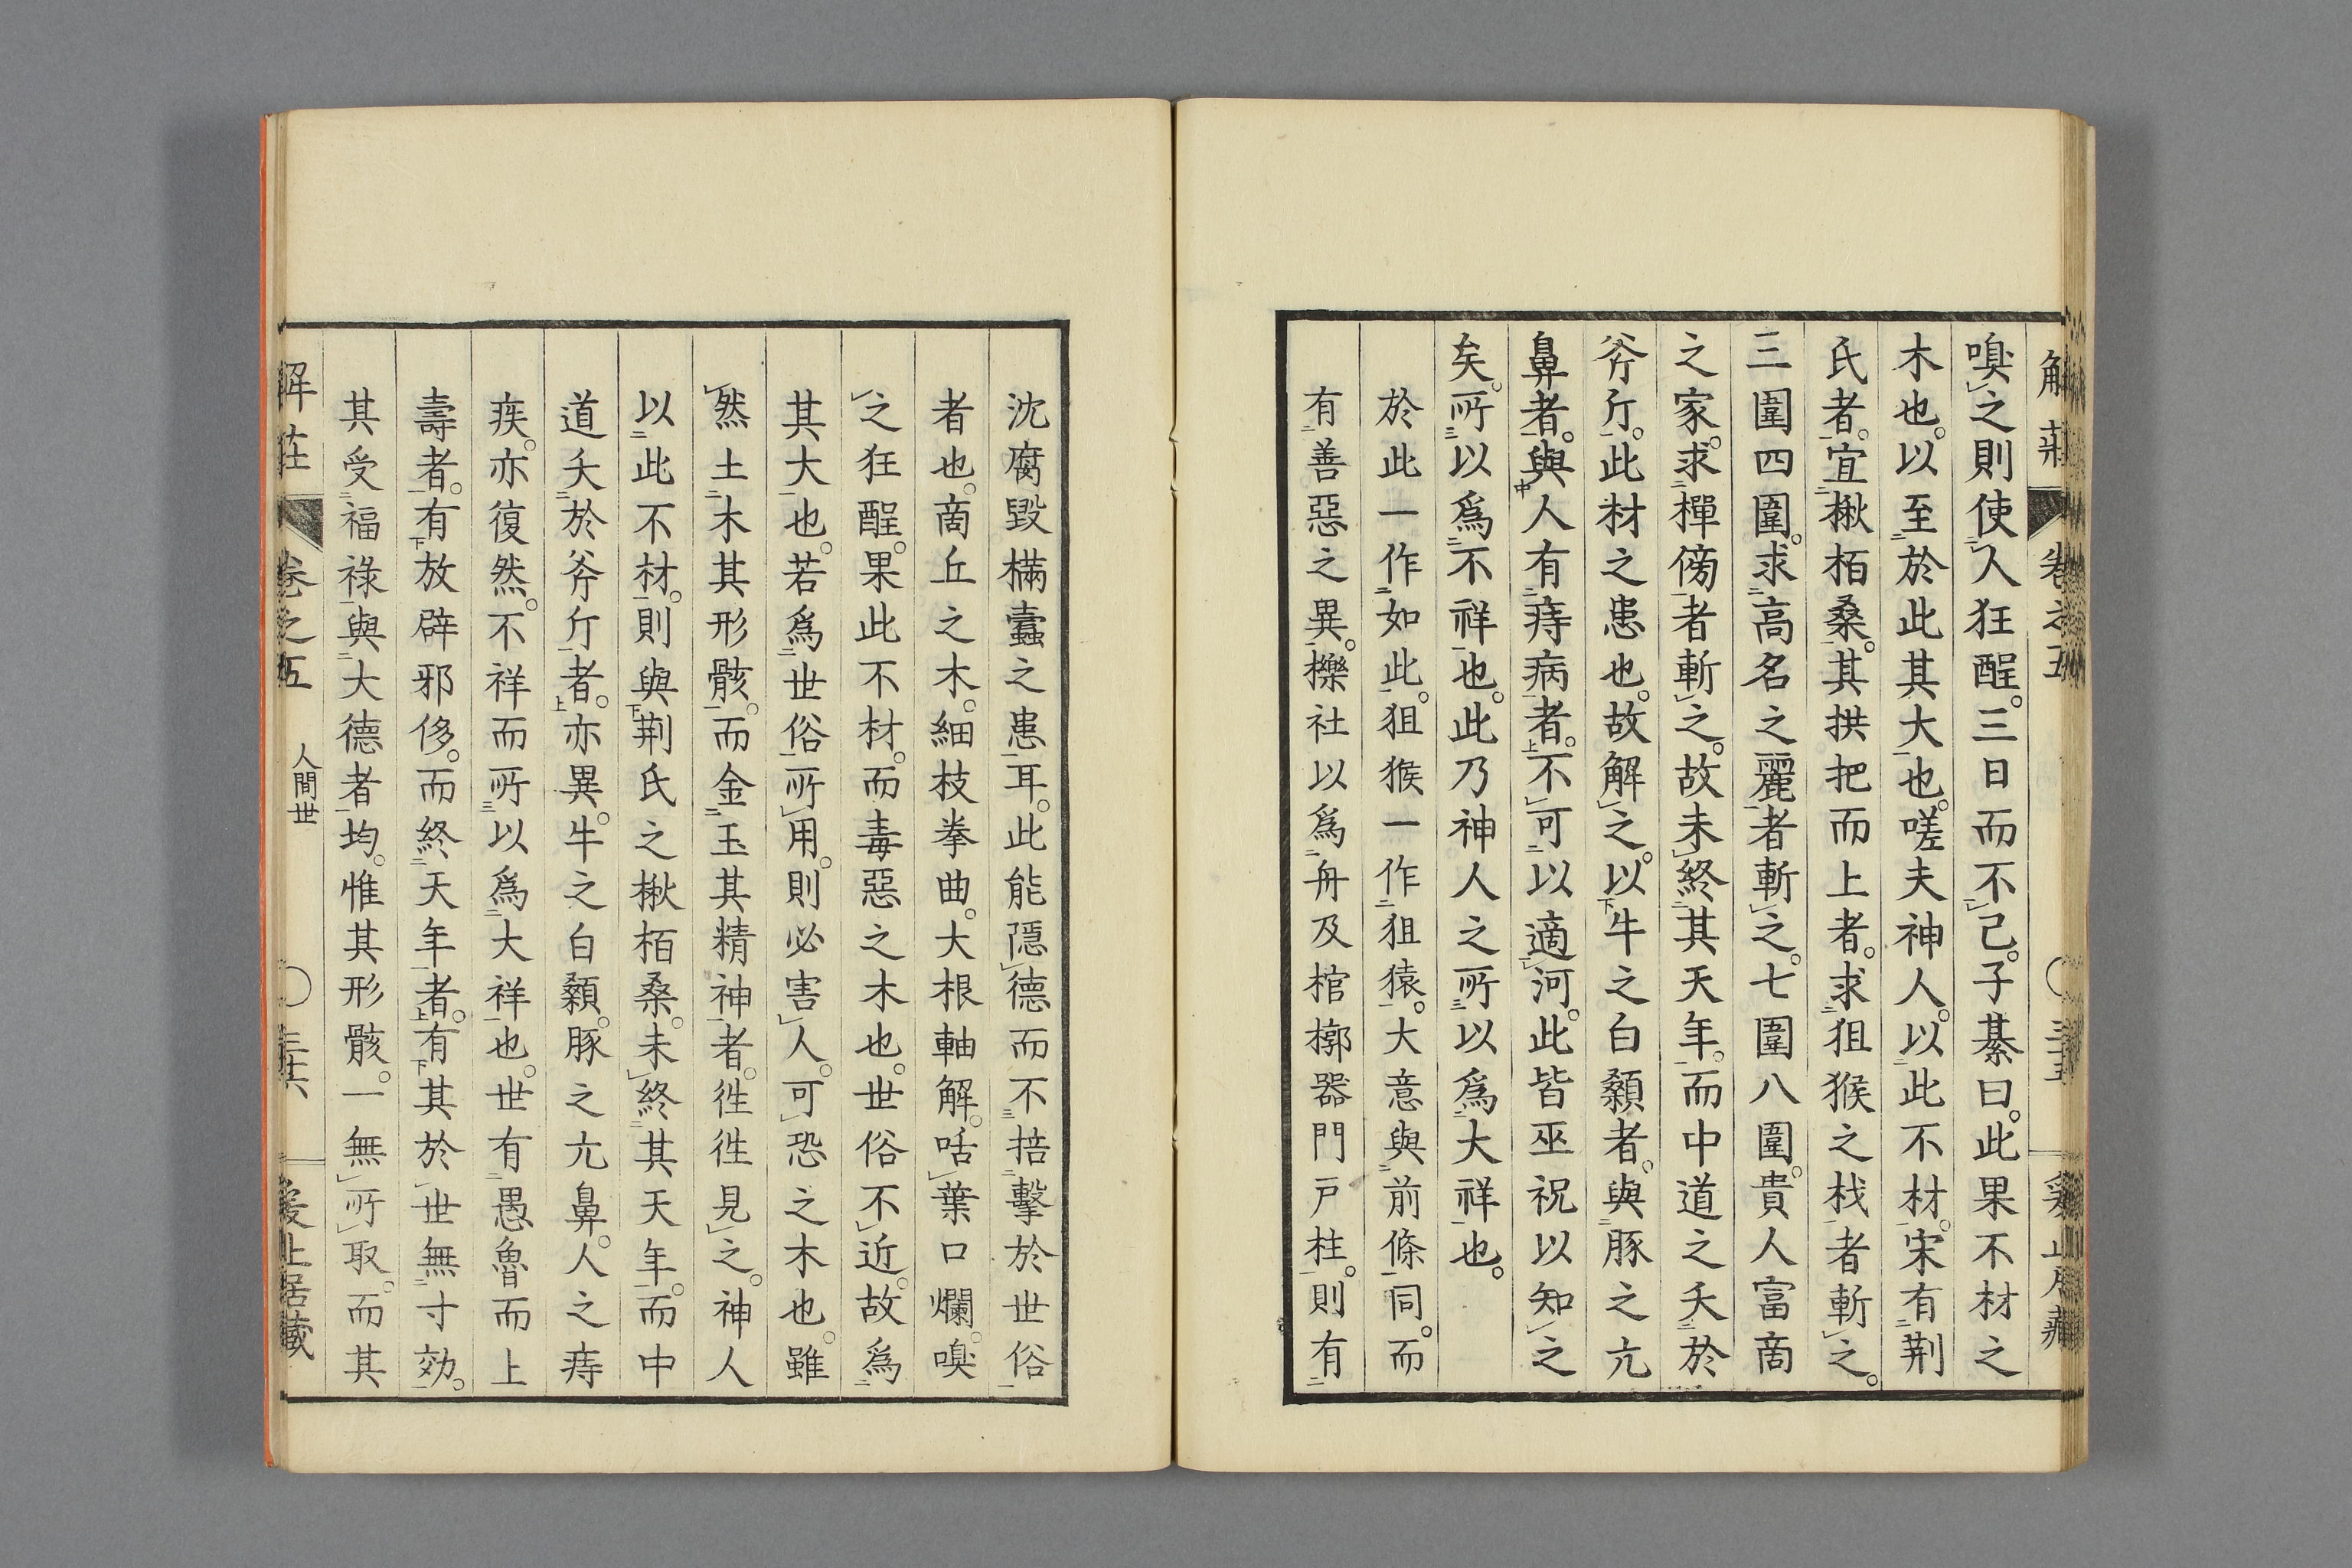 嗅之則使人狂酲。三日而不已。子綦曰。此果不材之
木也。以至於此其大也。嗟夫神人。以此不材。宋有荆
氏者。宜楸栢桑。其拱把而上者。求狙猴之杙者斬之。
三圍四圍。求高名之麗者斬之。七圍八圍。貴人富商
之家。求樿傍者斬之。故未終其天年。而中道之夭於
斧斤。此材之患也。故解之。以牛之白顙者。與豚之亢
鼻者。與人有痔病者。不可以適河。此皆巫祝以知之
矣。所以爲不祥也。此乃神人之所以爲大祥也。
於此一作如此。狙猴一作狙猿。大意與前條同。而
有善惡之異。櫟社以爲舟及棺槨器門戸柱。則有
沈腐毀樠蠹之患耳。此能隱德而不掊擊於世俗
者也。商丘之木。細枝拳曲。大根軸解。咶葉口爛。嗅
之狂酲。果此不材。而毒惡之木也。世俗不近。故爲
其大也。若爲世俗所用。則必害人。可恐之木也。雖
然土木其形骸。而金玉其精神者。徃徃見之。神人
以此不材。則與荆氏之楸栢桑。未終其天年。而中
道夭於斧斤者。亦異。牛之白顙。豚之亢鼻。人之痔
疾。亦復然。不祥而所以爲大祥也。世有愚魯而上
壽者。有放辟邪侈。而終天年者。有其於世無寸効。
其受福祿與大德者均。惟其形骸。一無所取。而其
解莊 卷之五 人間世 〇 三十六